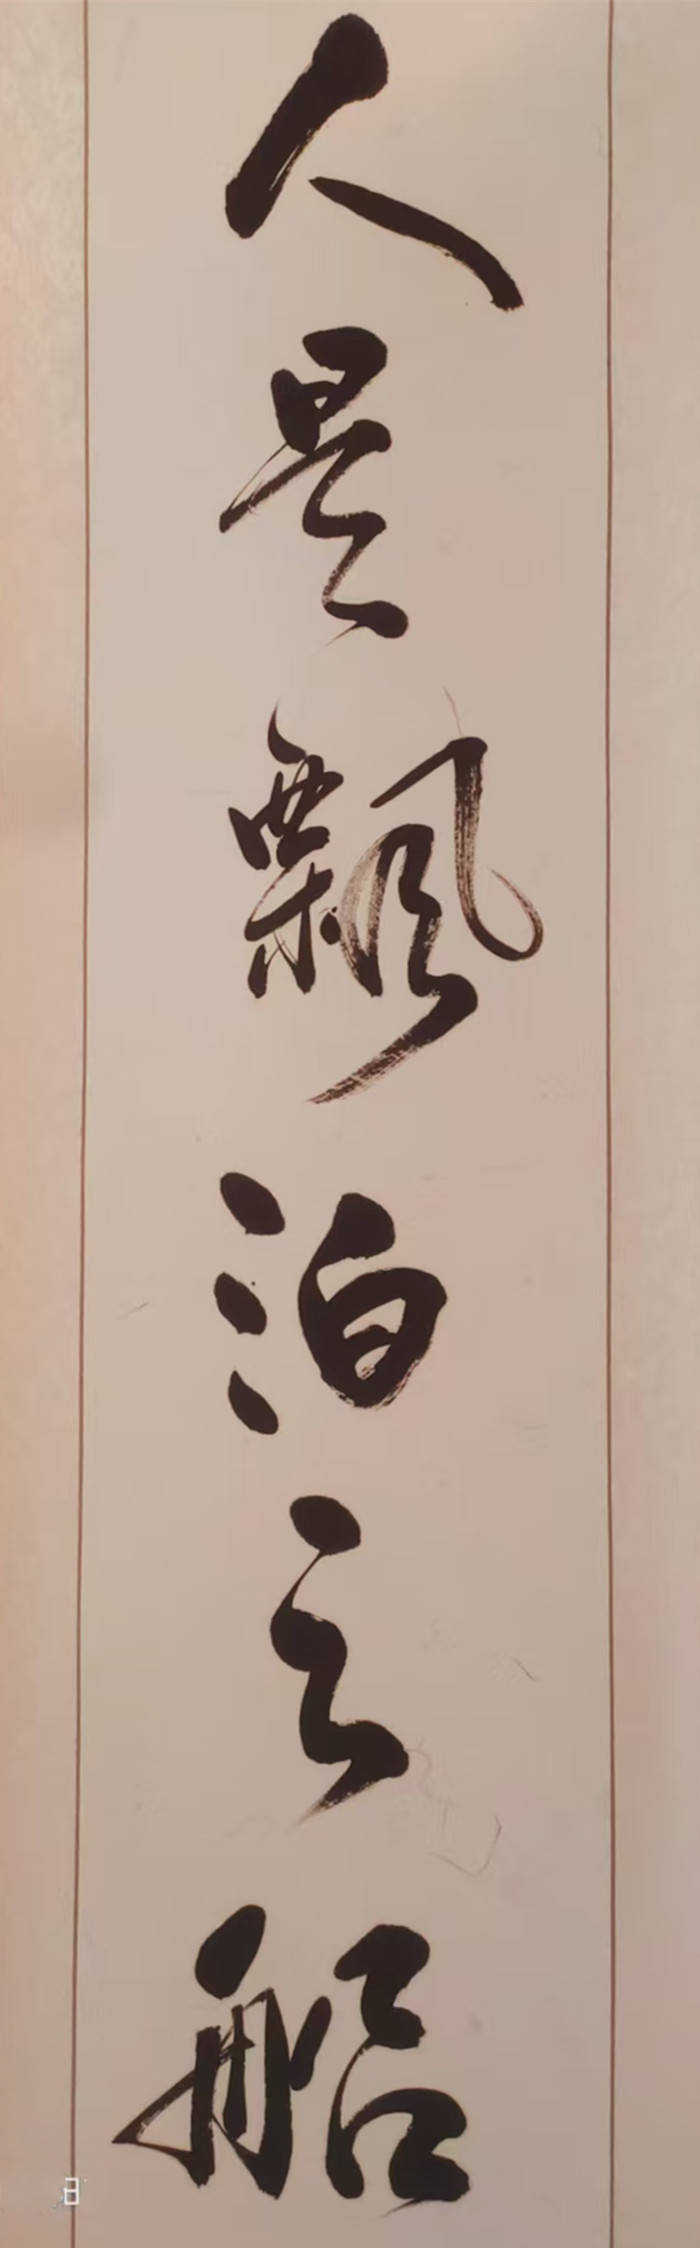 人是飘泊之船